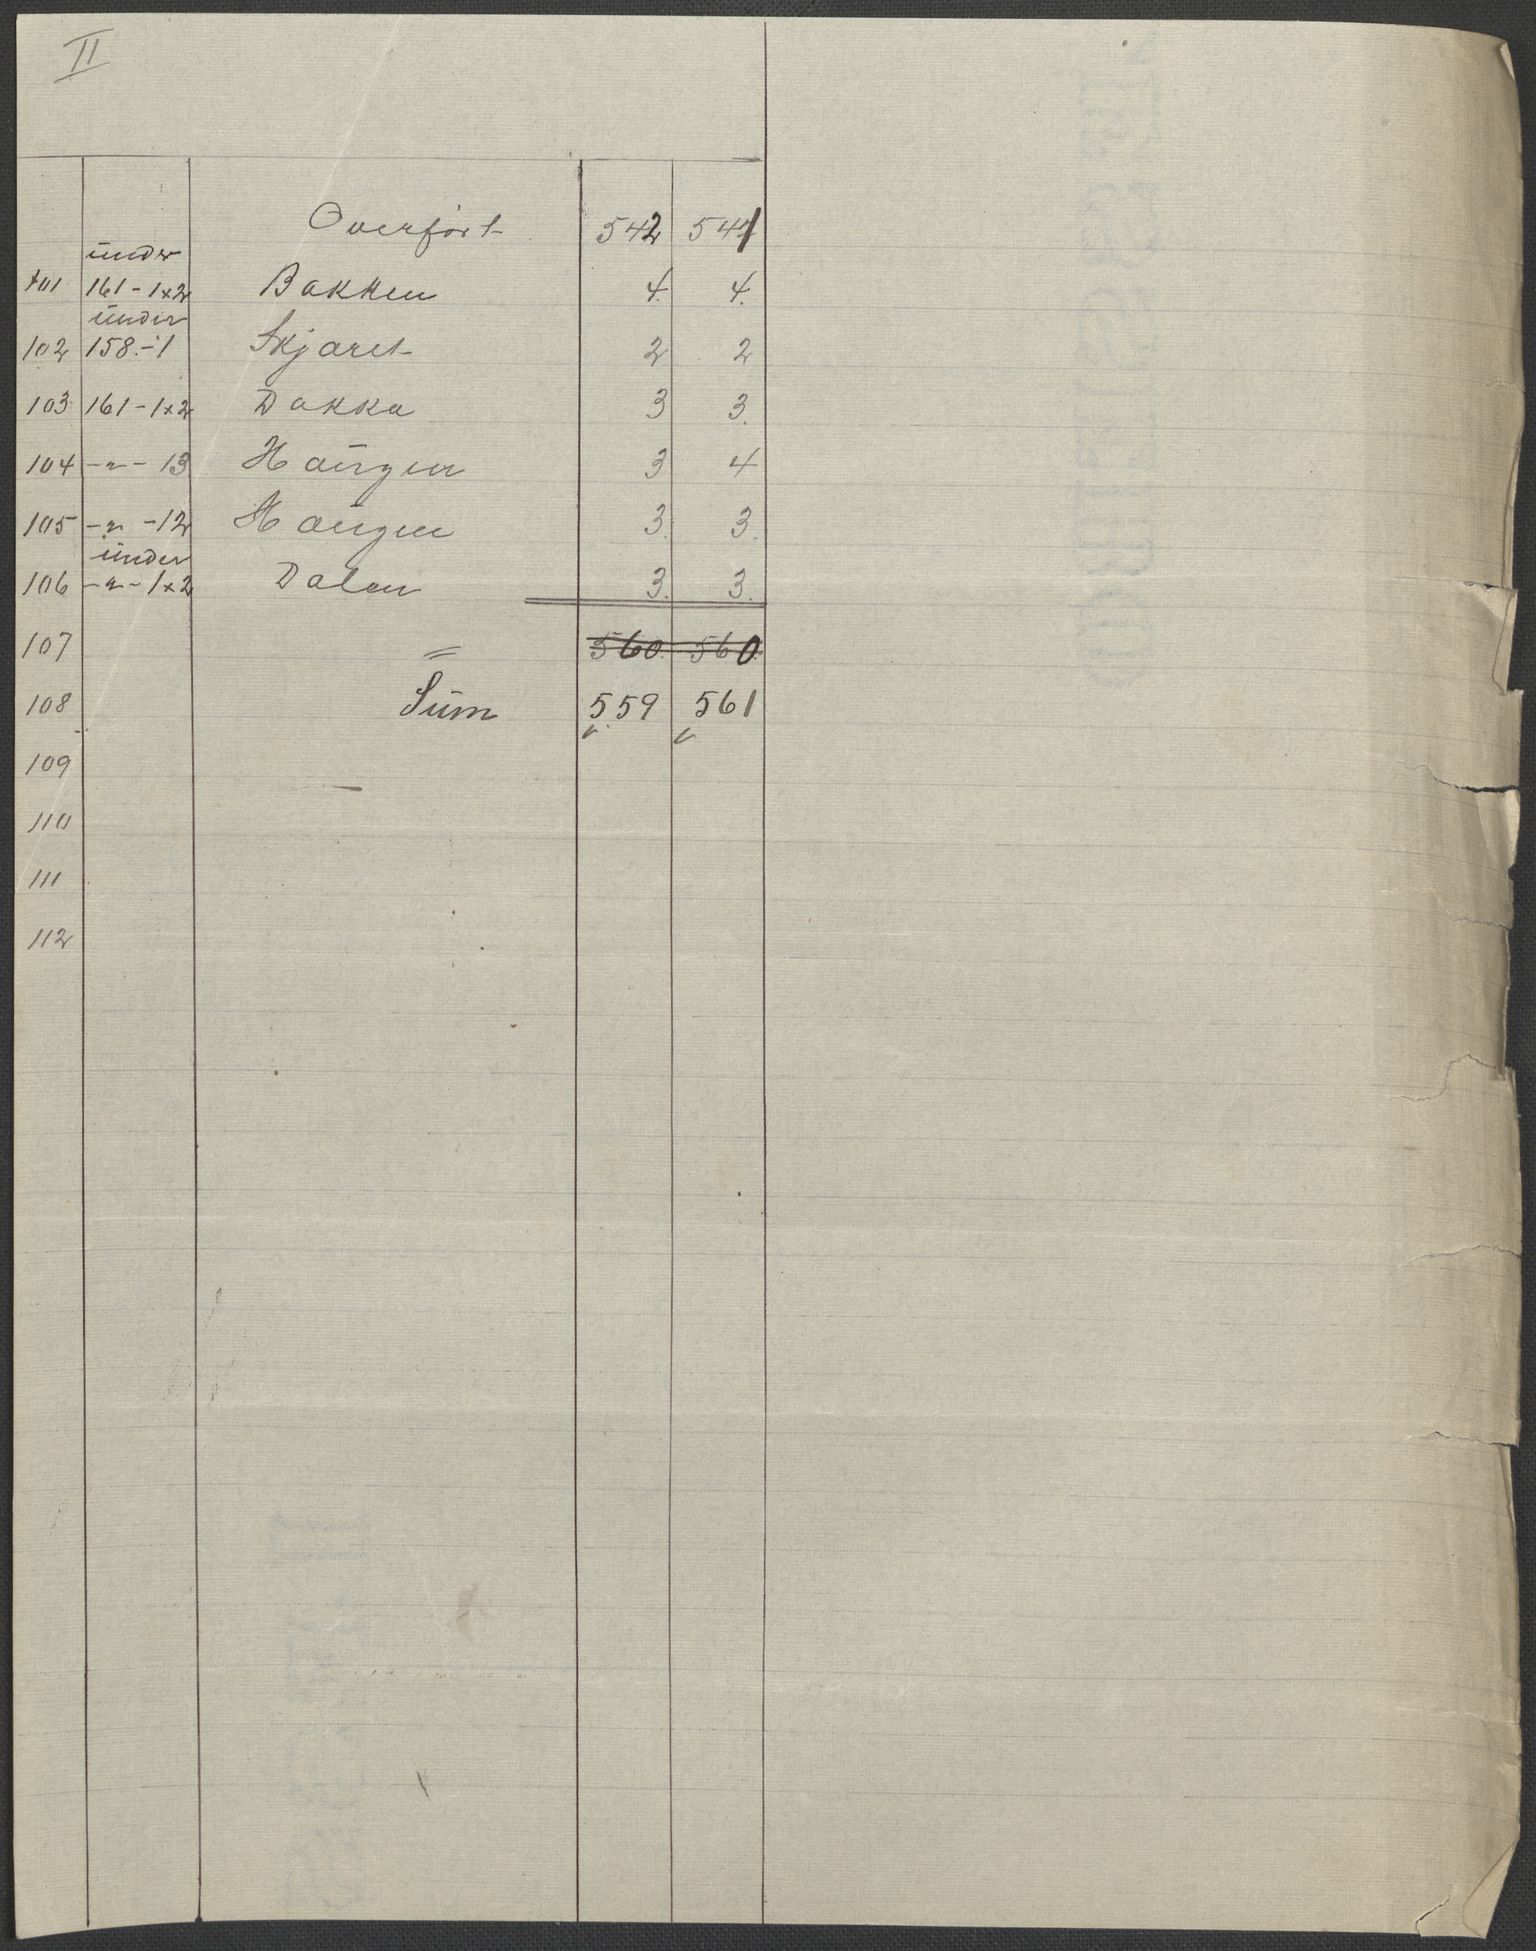 II
Overført 542 541
under
101 161-1×2 Bakken 4. 4.
under
102 158.-1 Skjaret 2 2
103 161-1×2 Dakka 3 3.
104 -"- 13 Haugen 3 4
105 -"- 12 Haugen 3. 3.
under
106 -"- 1×2 Dalen 3. 3.
107 = 560. 560.
108 Sum 559 561
109
110
111
112